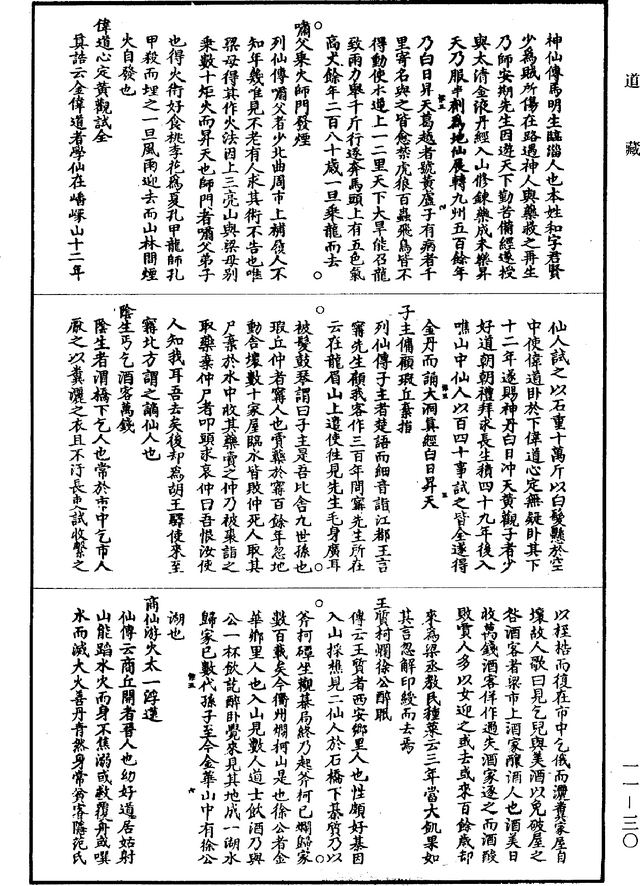 道藏
神仙傳馬明生臨淄人也本姓和字君賢
少為賊所傷在路遇神人與藥救之再生
乃師安期先生因遊天下勤苦備經遂授
與太清金液丹經入山修鍊藥成未樂昇
天乃服半劑為地仙展轉九州五百餘年
乃白日昇天葛越者號黃盧子有病者千
里寄名與之皆愈禁虎狼百蟲飛鳥皆不
得動使水逆上一二里天下大旱能召龍
致雨力舉千斤行逐奔馬頭上有五色氣
高丈餘年二百八十歲一旦乘龍而去
嘯父乘火師門發煙
列仙傳嘯父者少北曲周市上補履人不
知年幾唯見不老有人求其術不告也唯
梁母得其作火法因上三亮山與梁母別
乘數十炬火而昇天也師門者嘯父弟子
也得火術好食桃李花為夏孔甲龍師孔
甲殺而埋之一旦風雨迎去而山林間煙
火自發也
偉道心定黃觀試全
真誥云金偉道者學仙在嶓冢山十二年
仙人試之以石重十萬斤以白髮懸於空
中使偉道臥於下偉道心定無疑臥其下
十二年遂賜神丹白日沖天黃觀子者少
好道朝朝禮拜求長生積四十九年後入
嶕山中仙人以百四十事試之皆全遂得
金丹而誦大洞真經白日昇天
子主傭顧瑕丘棄指
列仙傳子主者楚語而細音詣江都王言
甯先生顧我客作三百年問甯先生所在
云在龍眉山上遣使往見先生毛身廣耳
被髮鼓琴謂曰子主是吾比舍九世孫也
瑕丘仲者甯人也賣藥於甯百餘年忽地
動舍壞數十家屋臨水皆敗仲死人取其
尸棄於水中收其藥賣之仲乃被裘詣之
取藥棄仲尸者叩頭求哀仲曰吾恨汝使
人知我耳吾去矣後却為胡王驛使來至
甯北方謂之謫仙人也
陰生丐乞酒客萬錢
陰生者渭橋下乞人也常於市中乞市人
厭之以糞灑之衣且不汙長吏試收繫之
以桎梏而復在市中乞俄而灑糞家屋自
壞故人歌曰見乞兒與美酒以免破屋之
咎酒客者梁市上酒家釀酒人也酒美日
收萬錢酒客佯作過失酒家逐之而酒酸
敗賈人多以女迎之或去或來百餘歲却
來為梁丞教民種菜云三年當大飢果如
其言忽解印綬而去焉
王質柯爛徐公醉眠
傳云王質者西安鄉里人也性頗好碁因
入山採樵見二仙人於石橋下碁質乃以
斧柯磹坐觀碁局終乃起斧柯已爛歸家
數百載矣今衢州爛柯山是也徐公者金
華鄉里人也入山見數人道士飲酒乃與
公一杯飲訖醉臥覺來見其地成一湖水
歸家已數代孫子至今金華山中有徐公
湖也
商仙游火太一蹈蓮
仙傳云商丘開者晉人也幼好道居姑射
山能蹈水火而身不焦溺或敕覆舟或噀
水而滅大火善丹青然身常貧客隱范氏
一一—三〇